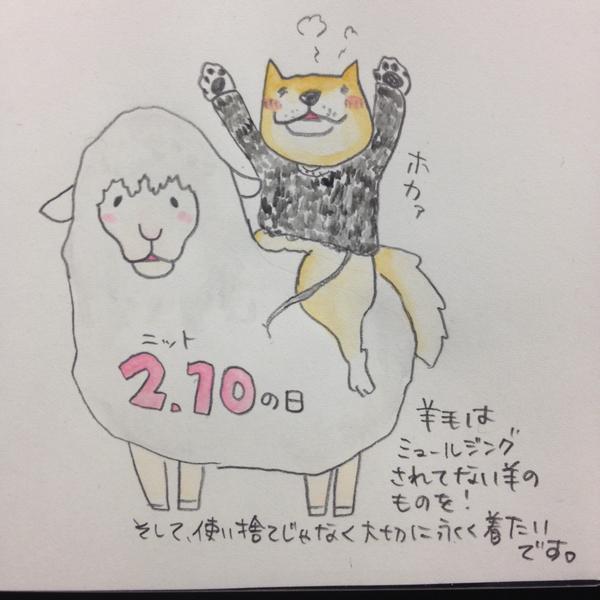 ホカァ
ニット
2.10の日
羊毛は
ミュールジング
されてない羊の
ものを！
そして、使い捨てじゃなく大切に永く着たい
です。